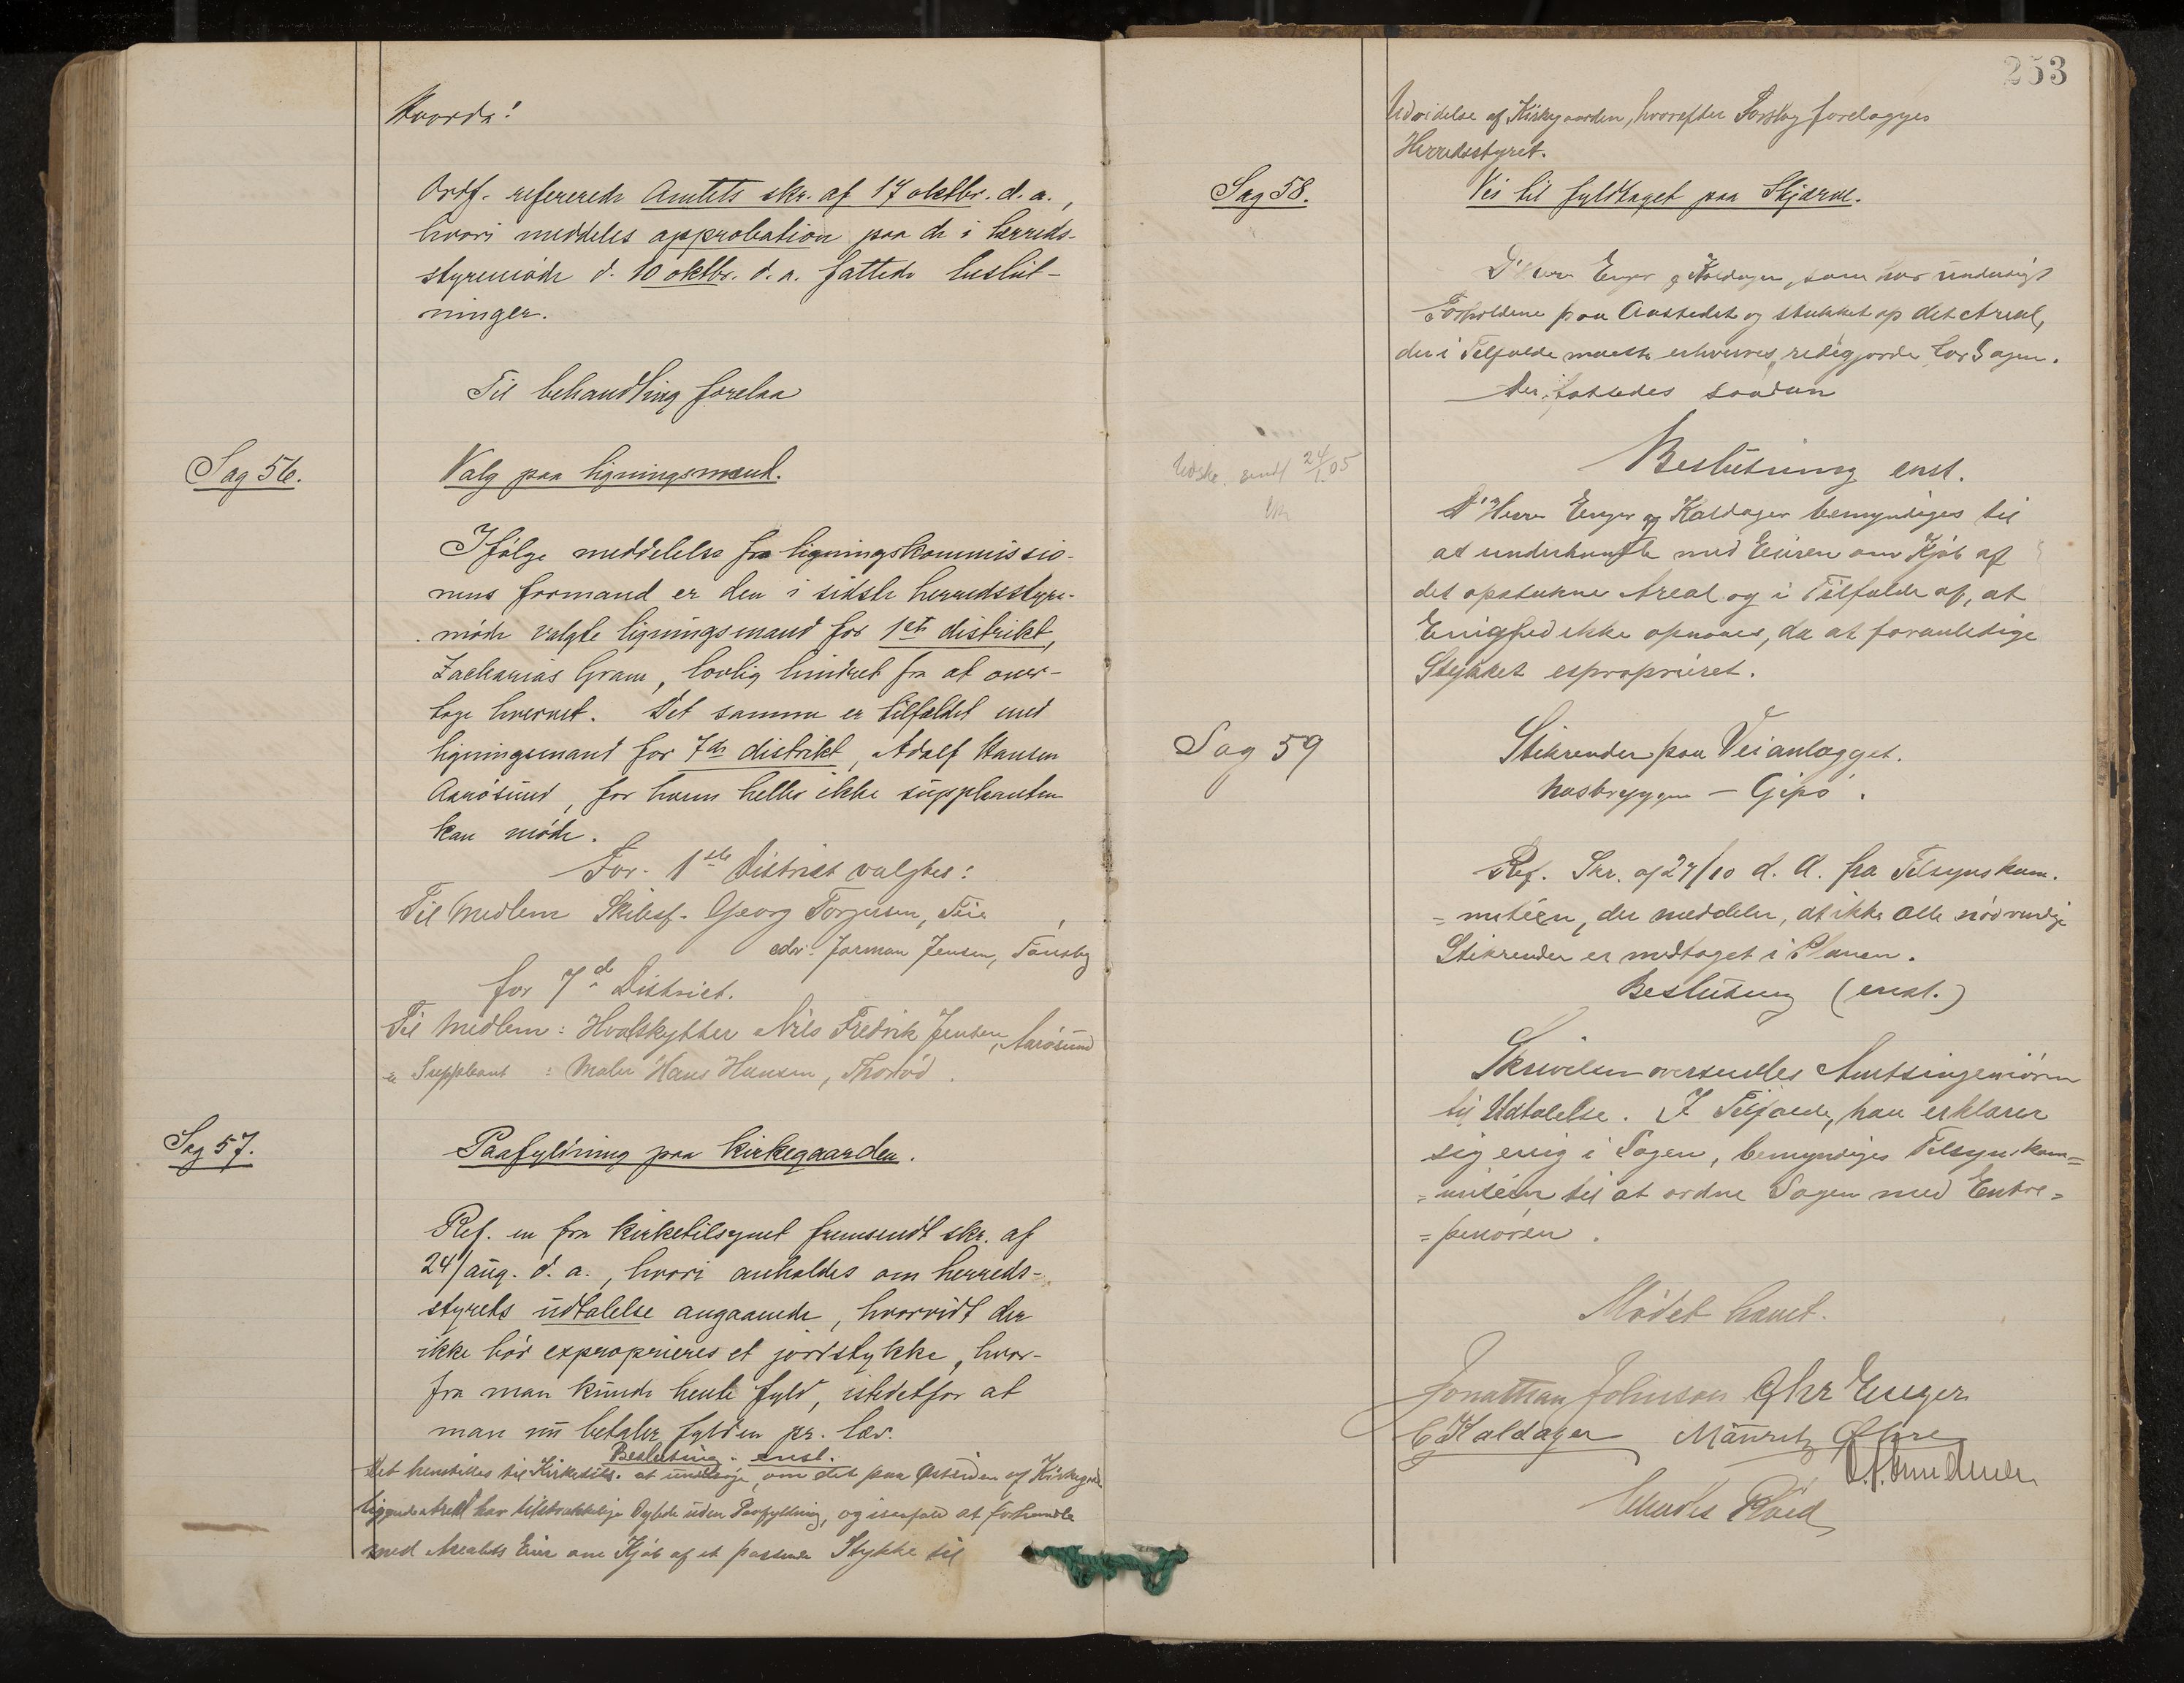 Ordf. refererede Amtets skr. af 17 oktbr. d. a.,
hvori meddeles approbation paa de i herreds-
styremöde d. 10 oktbr. d. a. fattede beslut-
ninger.
Til behandling forelaa
Sag 56.
Valg paa ligningsmænd.
Ifölge meddelelse fra ligningskommissio-
nens formand er den i sidste herredsstyre-
möde valgte ligningsmand for 1ste distrikt,
Zacharias Gram, lovlig hindret fra at over-
tage hvervet. Det samme er tilfældet med
ligningsmand for 7de distrikt, Adolf Hansen
Aarösund, for hvem heller ikke suppleanten
kan möde.
For 1ste District valgtes:
Til Medlem Skibsf. Georg Torgersen, Teie
Jensen, Tönsbg
for 7de District.
Til Medlem: Hvalskytter Nils Fredrik Jensen, Aarösund
" Suppleant : Maler Hans Hansen, Thoröd.
Sag 57.
Paafyldning paa kirkegaarden.
Ref. en fra kirketilsynet fremsendt skr. af
24/aug. d. a., hvori anholdes om herreds-
styrets udtalelse angaaende, hvorvidt der
ikke bör exproprieres et jordstykke, hvor-
fra man kunde hente fyld, istedetfor at
man nu betaler fylden pr. læs.
Beslutning. enst.
Det henstilles til Kirketils. at undersöge, om det paa Østsiden af Kirkegrden
liggende Areal har tilstrækkelige Dybde uden Paafyldning, og isaafald at forhandle
med Arealets Eier om Kjöb af et passende Stykke til
253
Udvidelse af Kirkegaarden, hvorefter Forslag forelægges
Herredsstyret.
Sag 58.
Vei til fyldtaget paa Skjærve.
D'Herr Enger og Kaldager, som har undersögt
Forholdene paa Aastedet og stukket op det Areal,
der i Tilfælde maatte erhverves, redegjorde for Sagen.
Der fattedes saadan
Udskr. sendt 24/1 05
Beslutning enst.
D'Herrer Enger og Kaldager bemyndiges til
at underhandle med Eieren om Kjöb af
det opstukne Areal og i Tilfælde af, at
Enighed ikke opnaaes, da at foranledige
Stykket exproprieret.
Sag 59
Stikrender paa Veianlægget.
Næsbryggen - Gipö.
Ref. Skr. af 27/10 d. A. fra Tilsynskom-
= miteen, der meddeler, at ikke alle nödvendige
Stikrender er medtaget i Planen.
Beslutning (enst.)
Skrivelsen oversendes Amtsingeniören
til Udtalelse. I Tilfælde, han erklærer
sig enig i Sagen, bemyndiges Tilsynskom=
= miteen til at ordne Sagen med Entre=
= prenören.
Mödet hævet.
Jonathan Johnson Chr Enger
C Kaldager Mauritz Øhre
Röed